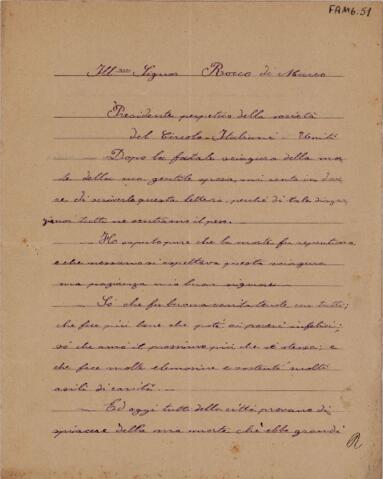 FAM6.51
Ill.mo Signor Rocco di Marco
Presidente perpetuo della società
del Circolo Italiani - Uniti
Dopo la fatale sciagura della mor-
te della sua gentile sposa, mi sento in dove-
re di scriverle questa lettera, perché di tale disgra-
zia noi tutti ne sentiamo il peso.
Ho saputo pure che la morte fu repentina
e che nessuno si aspettava questa sciagura
ma pazienza mio buon signore.
Sò che fu buona caritatevole con tutti;
che fece più bene che poté ai poveri infelici;
sò che amò il prossimo più che sé stessa; e
che fece molte elemosine e sostenté molti
asili di carità.
Ed oggi tutti della città provano di-
spiacere della sua morte, ch'ebbe grandi